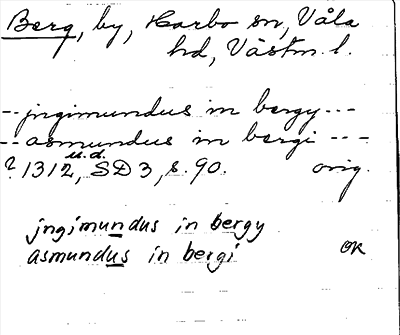 Berg, by, Harbo sn, Våla
hd, Västm. l.
--jngimundus in bergy---
--asmundus in bergi ---
u.d.
? 1312, SD 3, s. 90. orig.
jngimundus in bergy
asmundus in bergi OK